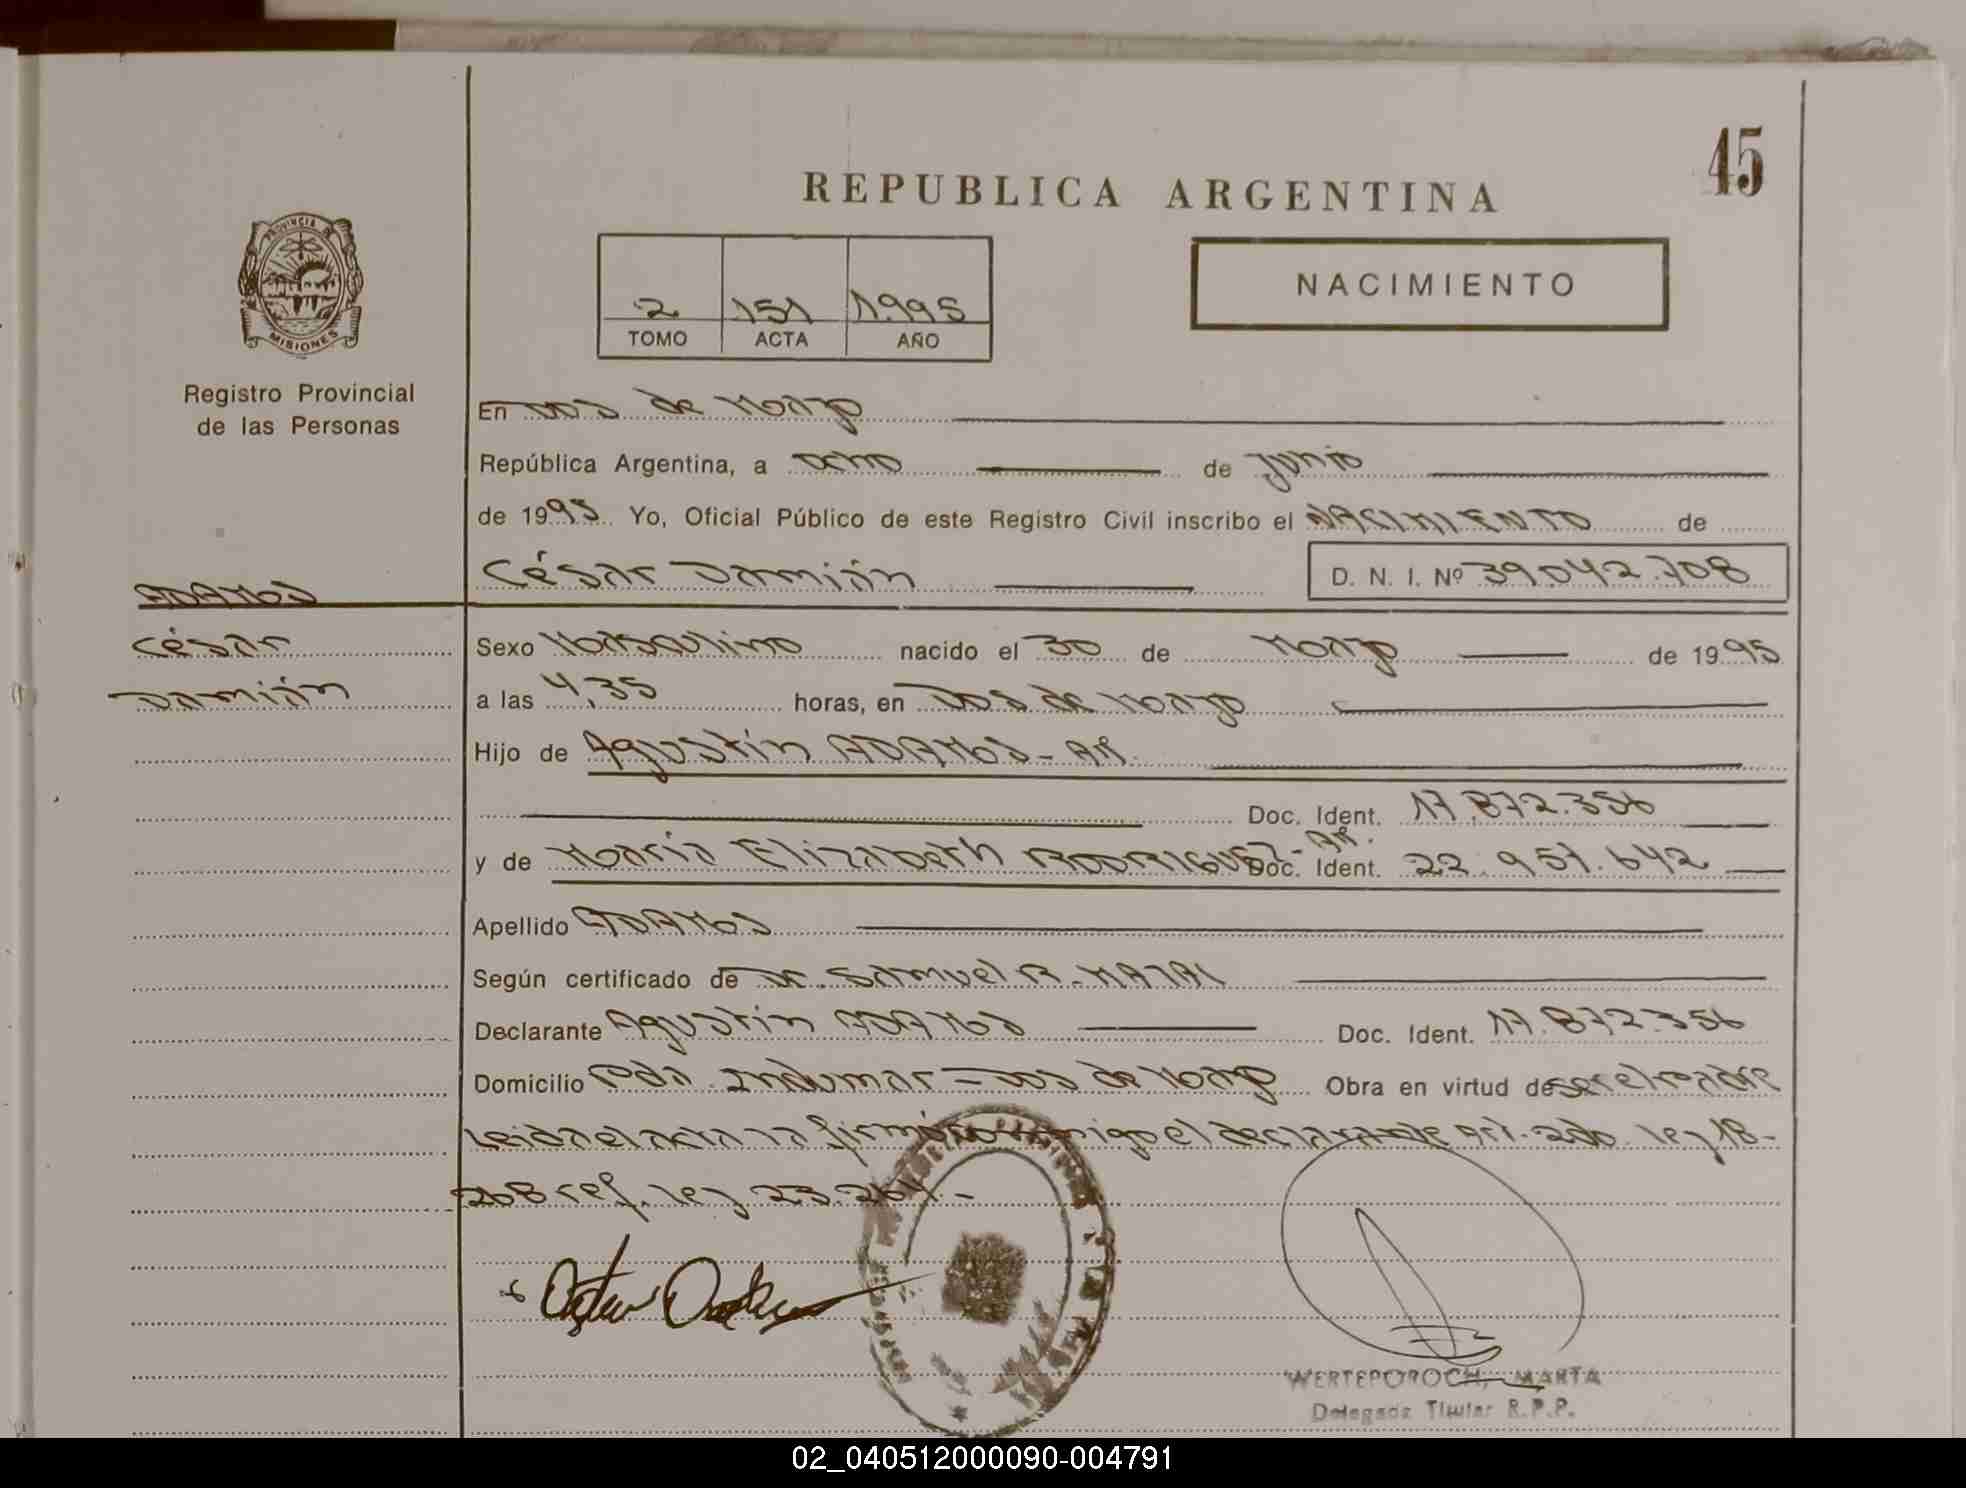 45
REPUBLICA ARGENTINA
PROVINCIA DE
MISIONES
NACIMIENTO
2 151 1995
TOMO ACTA AÑO
Registro Provincial
de las Personas
En Dos de Mayo
República Argentina, a ocho de junio
de 1995 Yo, Oficial Público de este Registro Civil inscribo el NACIMIENTO de
César Damián D. N. I. Nº 39.042.708
ADAMOS
César
Damián
Sexo Masculino nacido el 30 de Mayo de 1995
a las 4,35 horas, en Dos de Mayo
Hijo de Agustín ADAMOS - AR.
Doc. Ident. 17.872.356
y de María Elizabeth RODRIGUEZ - AR. Doc. Ident. 22.951.642
Apellido ADAMOS
Según certificado de Dr. Samuel R.
Declarante Agustín ADAMOS Doc. Ident. 17.872.356
Domicilio Pda. Indumar - Dos de Mayo Obra en virtud de ser el padre
Leida el acta la firma conmigo el declarante Art. 2do. ley 18-
248 ref. ley 23.264.-
WERTEPOROCH, MARTA
Delegada Titular R.P.P.
02_040512000090-004791